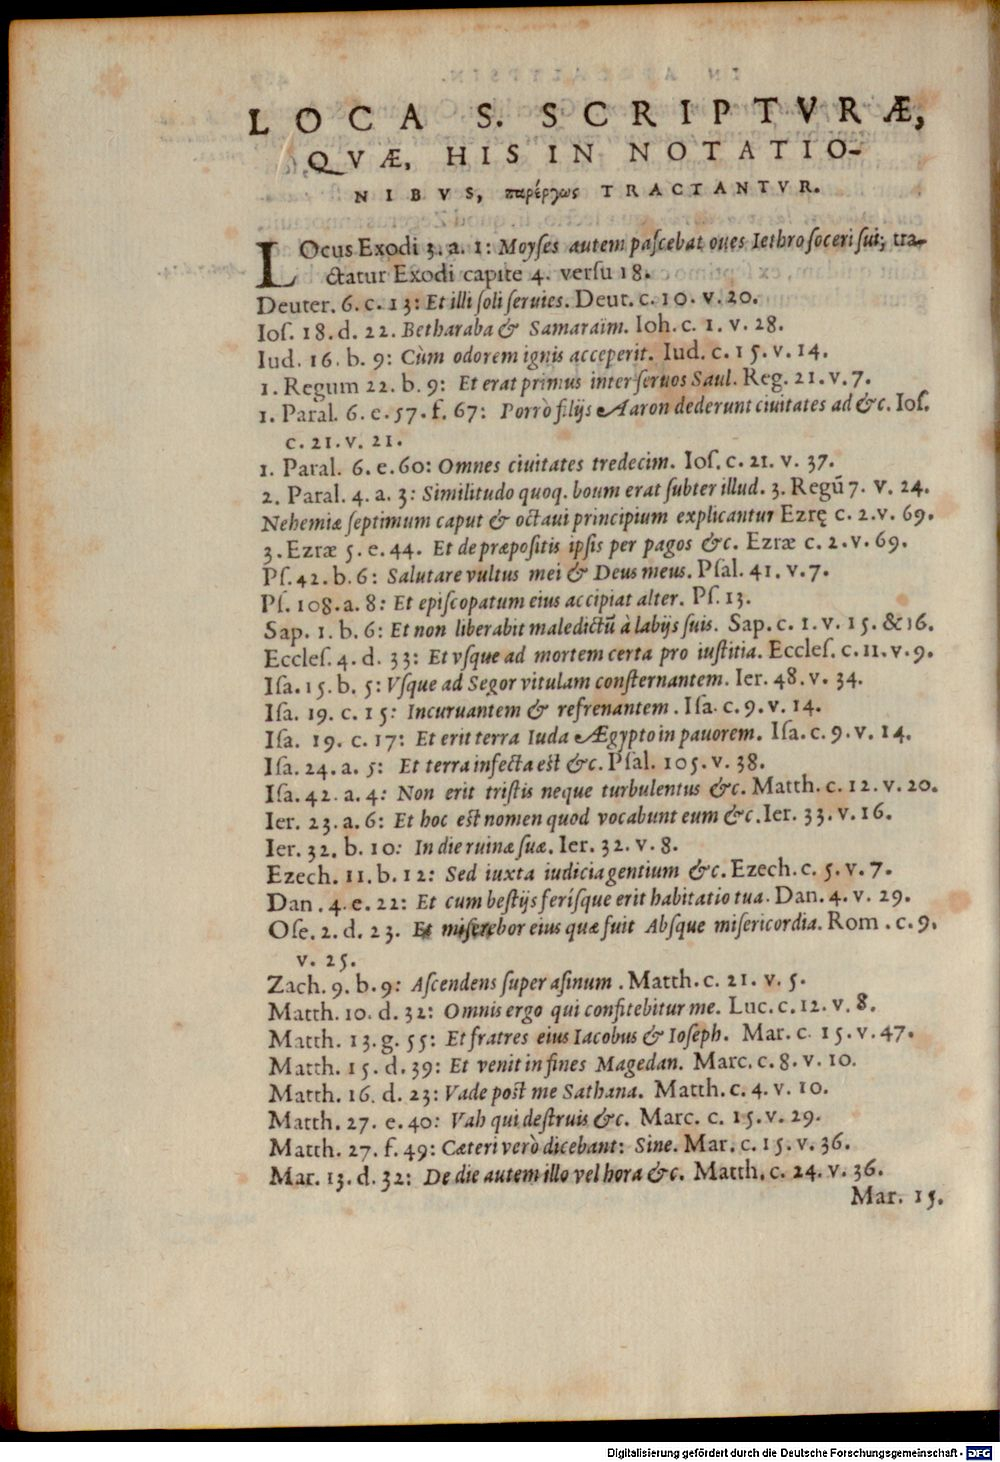 LOCA S. SCRIPTVRÆ,
QVÆ, HIS IN NOTATIO-
NIBVS, παρέργως TRACTANTVR.
LOcus Exodi 3. a. 1: Moyſes autem paſcebat oues Iethro ſoceri ſui; tra-
ctatur Exodi capite 4. verſu 18.
Deuter. 6. c. 13: Et illi ſoli ſeruies. Deut. c. 10. v. 20.
Ioſ. 18. d. 22. Betharaba & Samaraïm. Ioh. c. 1. v. 28.
Iud. 16. b. 9: Cùm odorem ignis acceperit. Iud. c. 15. v. 14.
1. Regum 22. b. 9: Et erat primus inter ſeruos Saul. Reg. 21. v. 7.
1. Paral. 6. e. 57. f. 67: Porrò filijs Aaron dederunt ciuitates ad &c. Ioſ.
c. 21. v. 21.
1. Paral. 6. e. 60: Omnes ciuitates tredecim. Ioſ. c. 21. v. 37.
2. Paral. 4. a. 3: Similitudo quoq. boum erat ſubter illud. 3. Regū 7. v. 24.
Nehemiæ ſeptimum caput & octaui principium explicantur Ezrę c. 2. v. 69.
3. Ezræ 5. e. 44. Et de præpoſitis ipſis per pagos &c. Ezræ c. 2. v. 69.
Pſ. 42. b. 6: Salutare vultus mei & Deus meus. Pſal. 41. v. 7.
Pſ. 108. a. 8: Et epiſcopatum eius accipiat alter. Pſ. 13.
Sap. 1. b. 6: Et non liberabit maledictū à labijs ſuis. Sap. c. 1. v. 15. & 16.
Eccleſ. 4. d. 33: Et vſque ad mortem certa pro iuſtitia. Eccleſ. c. 11. v. 9.
Iſa. 15. b. 5: Vſque ad Segor vitulam conſternantem. Ier. 48. v. 34.
Iſa. 19. c. 15: Incuruantem & refrenantem. Iſa. c. 9. v. 14.
Iſa. 19. c. 17: Et erit terra Iuda Ægypto in pauorem. Iſa. c. 9. v. 14.
Iſa. 24. a. 5: Et terra infecta eſt &c. Pſal. 105. v. 38.
Iſa. 42. a. 4: Non erit triſtis neque turbulentus &c. Matth. c. 12. v. 20.
Ier. 23. a. 6: Et hoc eſt nomen quod vocabunt eum &c. Ier. 33. v. 16.
Ier. 32. b. 10: In die ruinæ ſuæ. Ier. 32. v. 8.
Ezech. 11. b. 12: Sed iuxta iudicia gentium &c. Ezech. c. 5. v. 7.
Dan. 4. e. 22: Et cum beſtijs feriſque erit habitatio tua. Dan. 4. v. 29.
Oſe. 2. d. 23. Et miſerebor eius quæ fuit Abſque miſericordia. Rom. c. 9.
v. 25.
Zach. 9. b. 9: Aſcendens ſuper aſinum. Matth. c. 21. v. 5.
Matth. 10. d. 32: Omnis ergo qui confitebitur me. Luc. c. 12. v. 8.
Matth. 13. g. 55: Et fratres eius Iacobus & Ioſeph. Mar. c. 15. v. 47.
Matth. 15. d. 39: Et venit in fines Magedan. Marc. c. 8. v. 10.
Matth. 16. d. 23: Vade poſt me Sathana. Matth. c. 4. v. 10.
Matth. 27. e. 40: Vah qui deſtruis &c. Marc. c. 15. v. 29.
Matth. 27. f. 49: Cæteri verò dicebant: Sine. Mar. c. 15. v. 36.
Mar. 13. d. 32: De die autem illo vel hora &c. Matth. c. 24. v. 36.
Mar. 15.
Digitalisierung gefördert durch die Deutsche Forschungsgemeinschaft - DFG